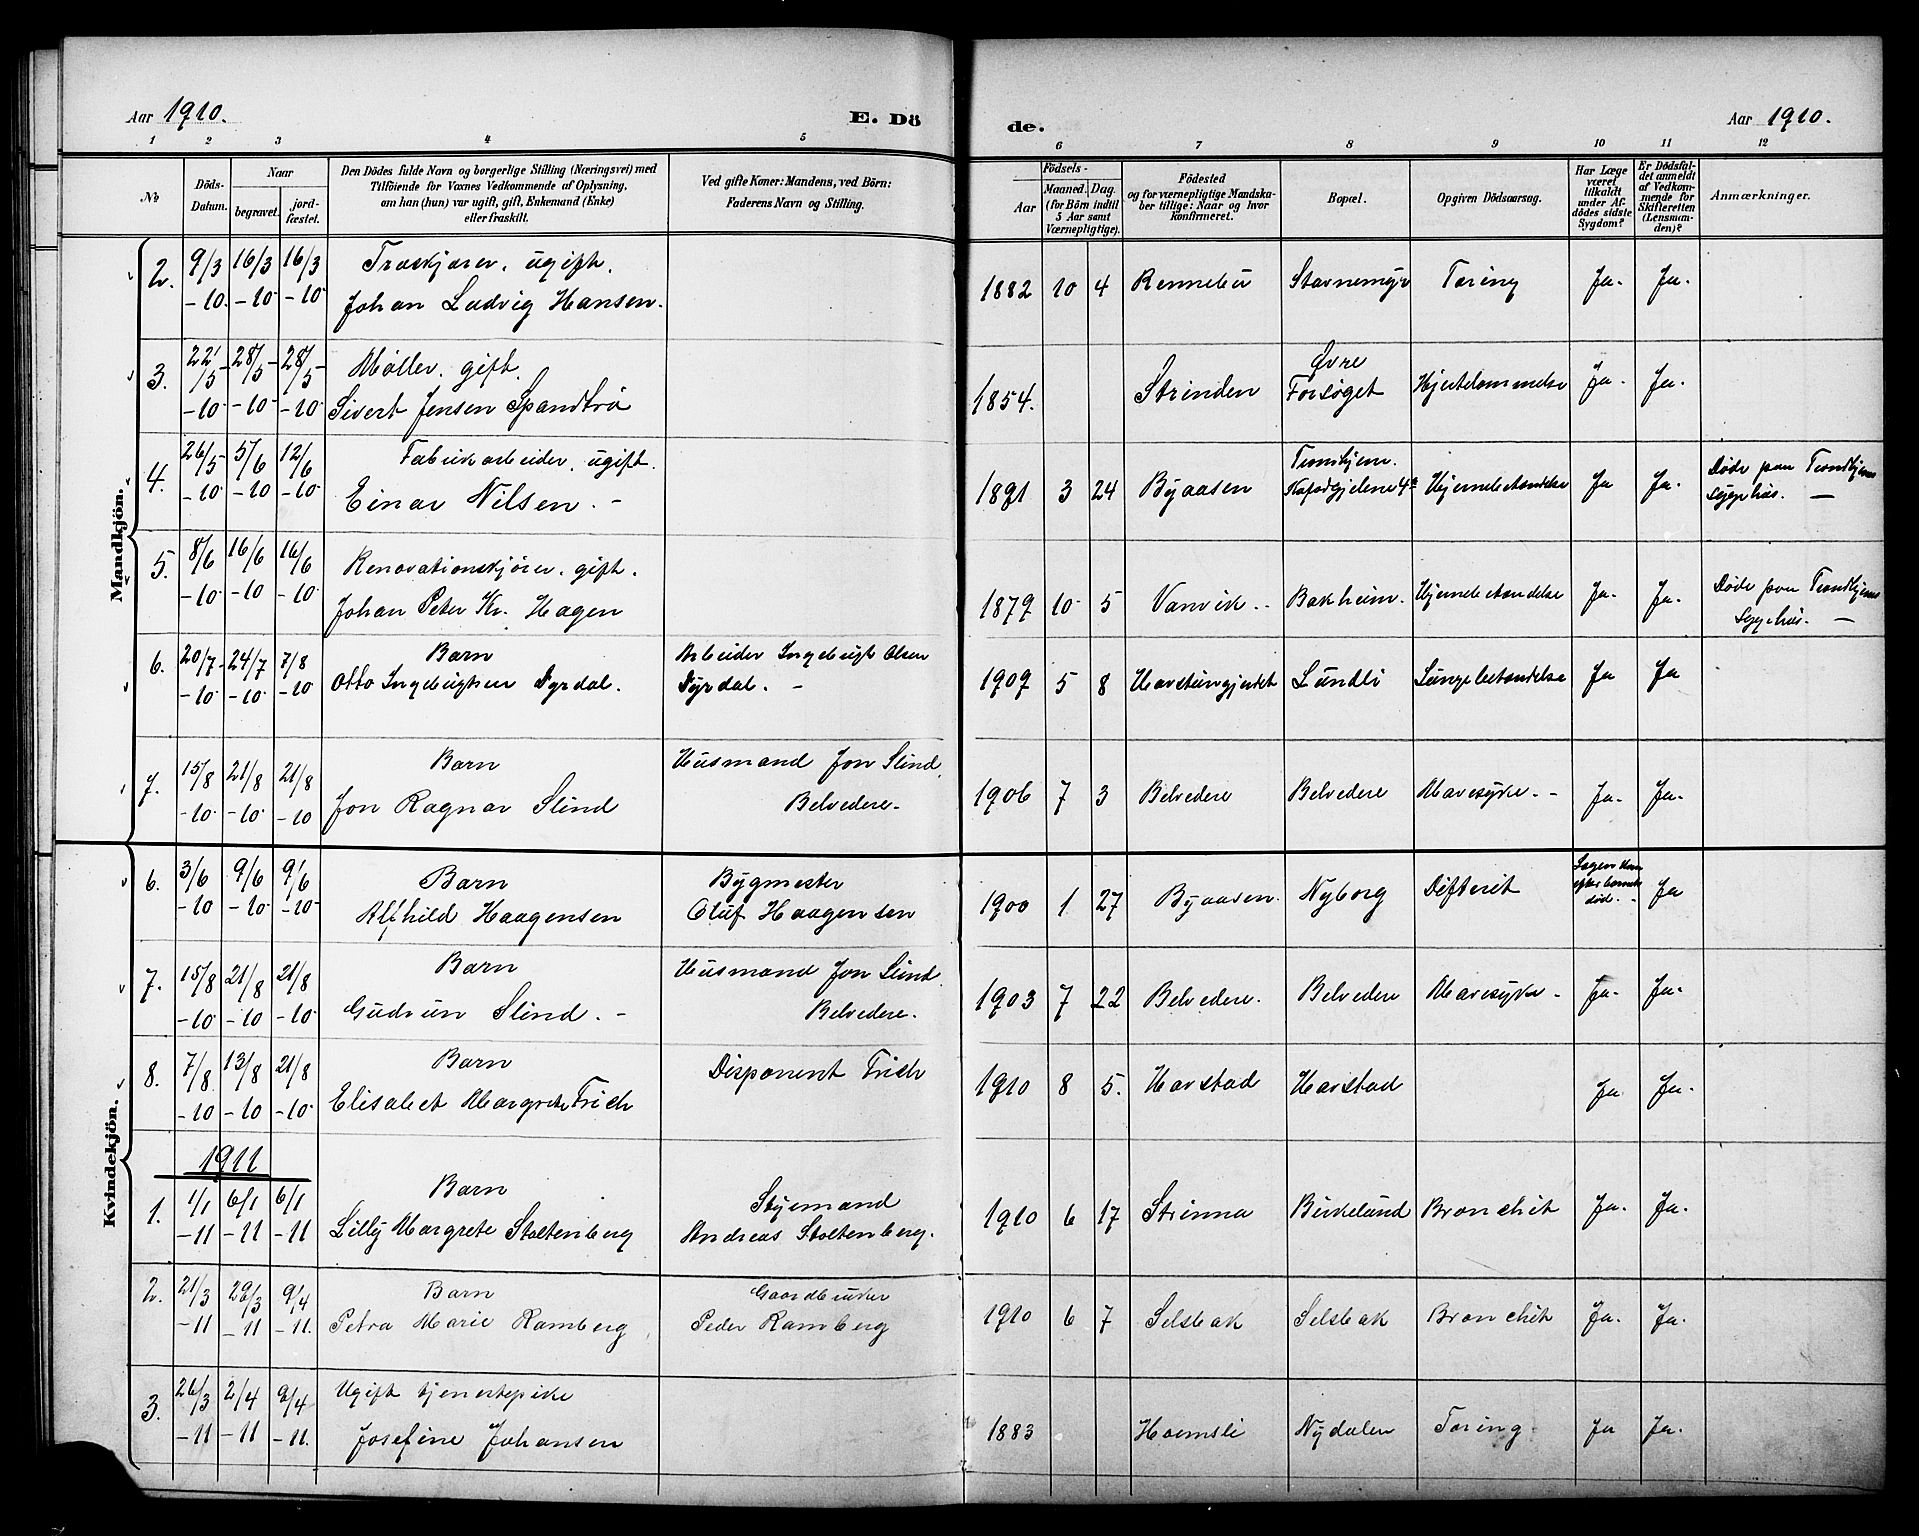 Aar 1910.
E. Dö
de.
Aar 1910.
1 2 3 4 5 6 7 8 9 10 11 12
No
Döds-Datum.
Naar
begravet.
jord-fæstet.
Den Dödes fulde Navn og borgerlige Stilling (Næringsvei) med
Tilföiende for Voxnes Vedkommende af Oplysning,
om han (hun) var ugift, gift, Enkemand (Enke)
eller fraskilt.
Ved gifte Koner: Mandens, ved Börn:
Faderens Navn og Stilling.
Födsels-
Aar
Maaned. Dag.
(for Börn indtil
5 Aar samt
Værnepligtige).
Födested
og for værnepligtige Mandska-
ber tillige: Naar og hvor
konfirmeret.
Bopæl.
Opgiven Dödsaarsag.
Har Læge
været
tilkaldt
under Af-
dödes sidste
Sygdom?
Er Dödsfal-
det anmeldt
af Vedkom-
mende for
Skifteretten
(Lensman-
den)?
Anmærkninger.
Mandkjön.
2. 9/3 -10. 16/3 -10 16/3 -10
Træskjærer, ugift.
Johan Ludvig Hansen.
1882 10 4 Rennebu Stavnemyr Tæring Ja. Ja.
3. 22/5 -10 28/5 -10 28/5 -10
Møller, gift.
Sivert Jensen Spandtrø
1854. Strinden Øvre Forsöget Hjertelammelse Ja. Ja.
4. 26/5 -10 5/6 -10 12/6 -10
Fabrikarbeider, ugift.
Einar Nilsen. -
1891 3 24 Byaasen Trondhjem. Hjernebetændelse Ja Ja. Døde paa Trondhjems Sygehus. —
5. 8/6 -10 16/6 -10 16/6 -10
Renovationskjører, gift.
Johan Peter Kr. Hagen
1879 10 5 Vanvik.. Bakheim. Hjernebetændelse Ja. Ja. Døde paa Trondhjems Sygehus. —
6. 20/7 -10 24/7 -10 7/8 -10
Barn
Otto Ingebrigtsen Dyrdal.
Arbeider Ingebrigt Olsen
Dyrdal. -
1909 5 8 Havsteingjerdet Lundli Lungebetændelse Ja Ja
7. 15/8 -10 21/8 -10 21/8 -10
Barn
Jon Ragnar Slind
Husmand Jon Slind,
Belvedere.
1906 7 3 Belvedere Belvedere Mavesyke. - Ja. Ja.
Kvindekjön.
6. 3/6 -10 9/6 -10 9/6 -10
Barn
Alfhild Haagensen
Bygmester
Oluf Haagensen
1900 1 27 Byaasen. Nyborg Difterit Lægen kom efter barnets død. - Ja
7. 15/8 -10 21/8 -10 21/8 -10
Barn
Gudrun Slind. -
Husmand Jon Slind.
Belvedere.
1903 7 22 Belvedere. Belvedere Mavesyke - Ja. Ja.
8. 7/8 -10 13/8 -10 21/8 -10
Barn
Elisabet Margrete Frich
Disponent Frich
1910 8 5. Havstad Havstad Ja Ja.
1911
1. 1/1 -11 6/1 -11 6/1 -11
Barn
Lilly Margrete Stoltenberg
Styrmand
Andreas Stoltenberg.
1910 6 17 Strinna Birkelund Bronchit Ja. Ja.
2. 21/3 -11 29/3 -11 9/4 -11.
Barn
Petra Marie Ramberg
Gaardbruker
Peder Ramberg
1910 6 7 Selsbak Selsbak Bronchit Ja. Ja.
3. 26/3 -11 2/4 -11 9/4 -11.
Ugift tjenestepike
Josefine Johansen
1883 Hoemsli Nydalen Tæring. Ja Ja.